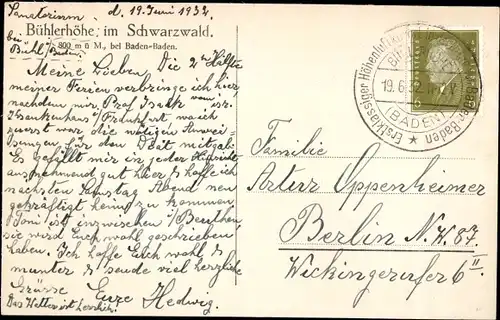 Sanatorium d. 19. Juni 1932.
Bühlerhöhe, im Schwarzwald.
800 m ü M., bei Baden-Baden.
bei Bühl/Baden.
Meine Lieben! Die 2te Hälfte
meiner Ferien verbringe ich hier
nachdem mir Prof. Isaak vom isr.
Krankenhaus Frankfurt wo ich
zuerst war die nötigen Anwei-
sungen für den Diät mitgab.
Es gefällt mir in jeder Hinsicht
ausnehmend gut hier & hoffe ich
nächsten Samstag Abend neu
gekräftigt heim zu kommen
Toni ist inzwischen i/Beuthen,
sie wird Euch wohl geschrieben
haben. Ich hoffe Euch wohl &
munter & sende viel herzliche
Grüsse Eure Hedwig.
Das Wetter ist herrlich.
Erstklassiger Höhenluftkurort
19.6.32
(BADEN)
Baden-Baden
Familie
Artur Oppenheimer
Berlin N.W. 87.
Wickingerufer 6 II